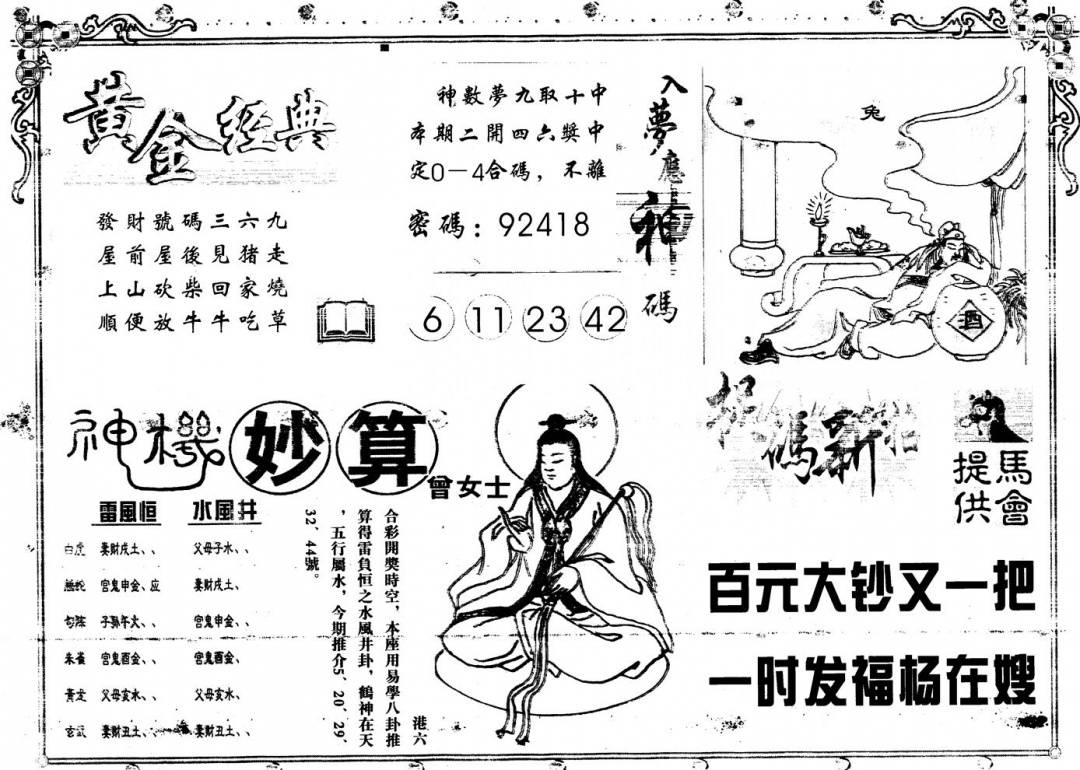 黃金經典
發財號碼三六九
屋前屋後見猪走
上山砍柴回家燒
順便放牛牛吃草
神數夢九取十中
本期二開四六獎中
定0一4合碼，不離
密碼：92418
6 11 23 42
入夢應神碼
兔
酒
神機妙算
曾女士
雷風恒 水風井
白虎 妻財戌土、、 父母子水、、
螣蛇 宫鬼申金、应 妻財戌土、
勾陈 子孙午火、、 宫鬼申金、、
朱雀 宫鬼酉金、、 宫鬼酉金、
青龙 父母亥水、、 父母亥水、
玄武 妻財丑土、、 妻財丑土、、
港六
合彩開獎時空，本座用易學八卦推
算得雷負恒之水風井卦，鶴神在天
，五行屬水，今期推介5、20、29、
32、44號。
碼新
馬會
提供
百元大钞又一把
一时发福杨在嫂